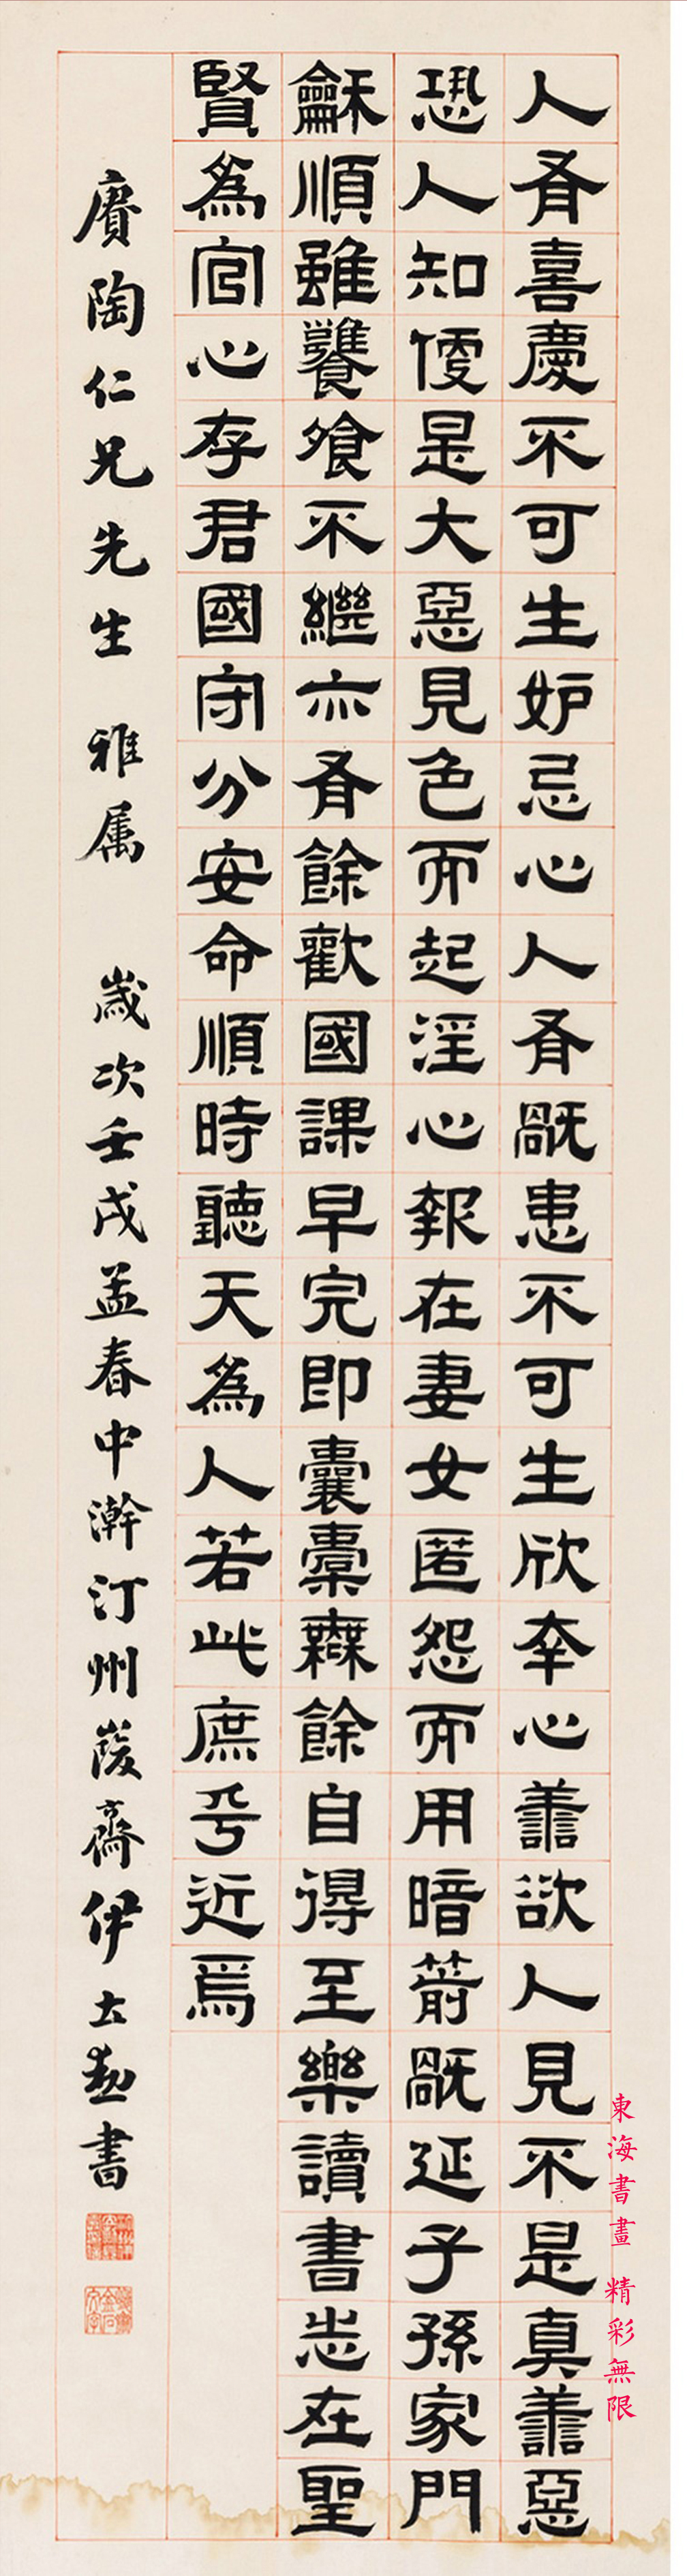 人有喜慶不可生妒忌心人有禍患不可生欣幸心善欲人見不是真善惡
恐人知便是大惡見色而起淫心報在妻女匿怨而用暗箭禍延子孫家門
龢順雖饔飧不繼亦有餘歡國課早完即囊橐無餘自得至樂讀書志在聖
賢為官心存君國守分安命順時聽天為人若此庶乎近焉
賡陶仁兄先生 雅属 歲次壬戌孟春中澣汀州峻齋伊立勳書
東海書畫 精彩無限